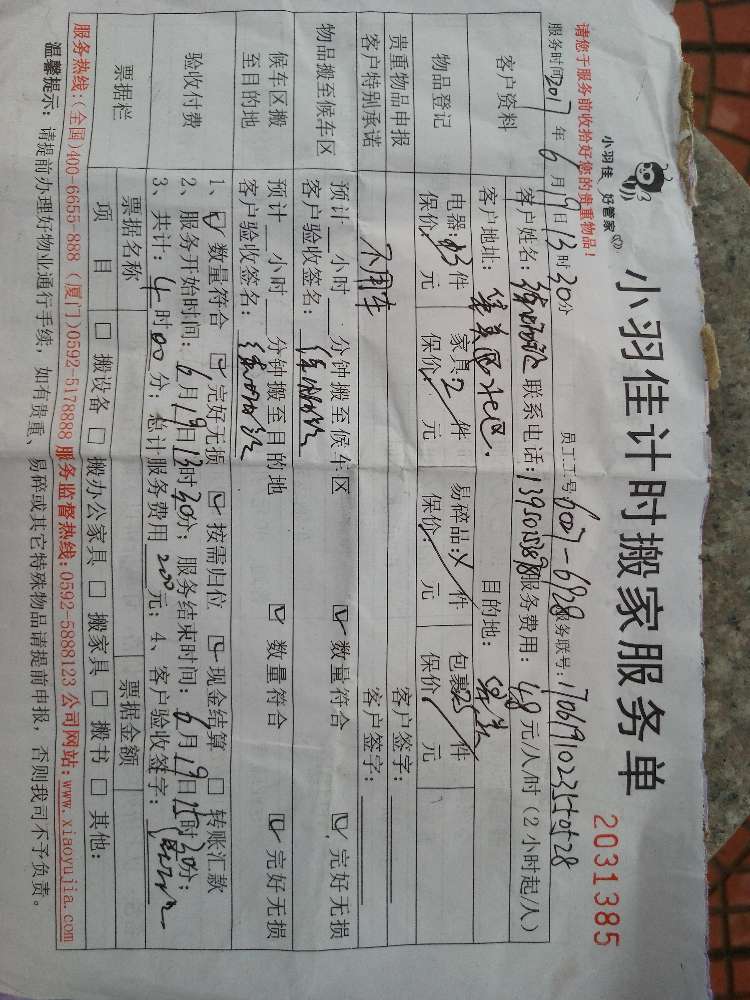 小羽佳 好管家
小羽佳计时搬家服务单
2031385
请您于服务前收拾好您的贵重物品!
服务时间2017年6月19日13时30分 员工工号 服务联号:
客户资料
客户姓名: 联系电话: 服务费用:48元/人/时(2小时起/人)
客户地址: 目的地:
物品登记
电器: 件 家具:2件 易碎品: 件 包裹 件
保价: 元 保价: 元 保价: 元 保价: 元
贵重物品申报 客户签字:
客户特别承诺 不用车 客户签字:
物品搬至候车区
预计 小时 分钟搬至候车区 数量符合 完好无损
客户验收签名:
候车区搬至目的地
预计 小时 分钟搬至目的地 数量符合 完好无损
客户验收签名:
验收付费
1、☑ 数量符合 ☑ 完好无损 ☑ 按需归位 ☑ 现金结算 □ 转账汇款
2、服务开始时间:6月19日13时30分; 服务结束时间:6月19日15时30分;
3、共计:4时00分; 总计服务费用200元; 4、客户验收签字:
票据栏
票据名称 票据金额
项目 □ 搬设备 □ 搬办公家具 □ 搬家具 □ 搬书 □ 其他:
服务热线:(全国)400-6655-888 (厦门)0592-5178888 服务监督热线:0592-5888123 公司网站:www.xiaoyujia.com
温馨提示:请提前办理好物业通行手续,如有贵重、易碎或其它特殊物品请提前申报,否则我司不予负责。